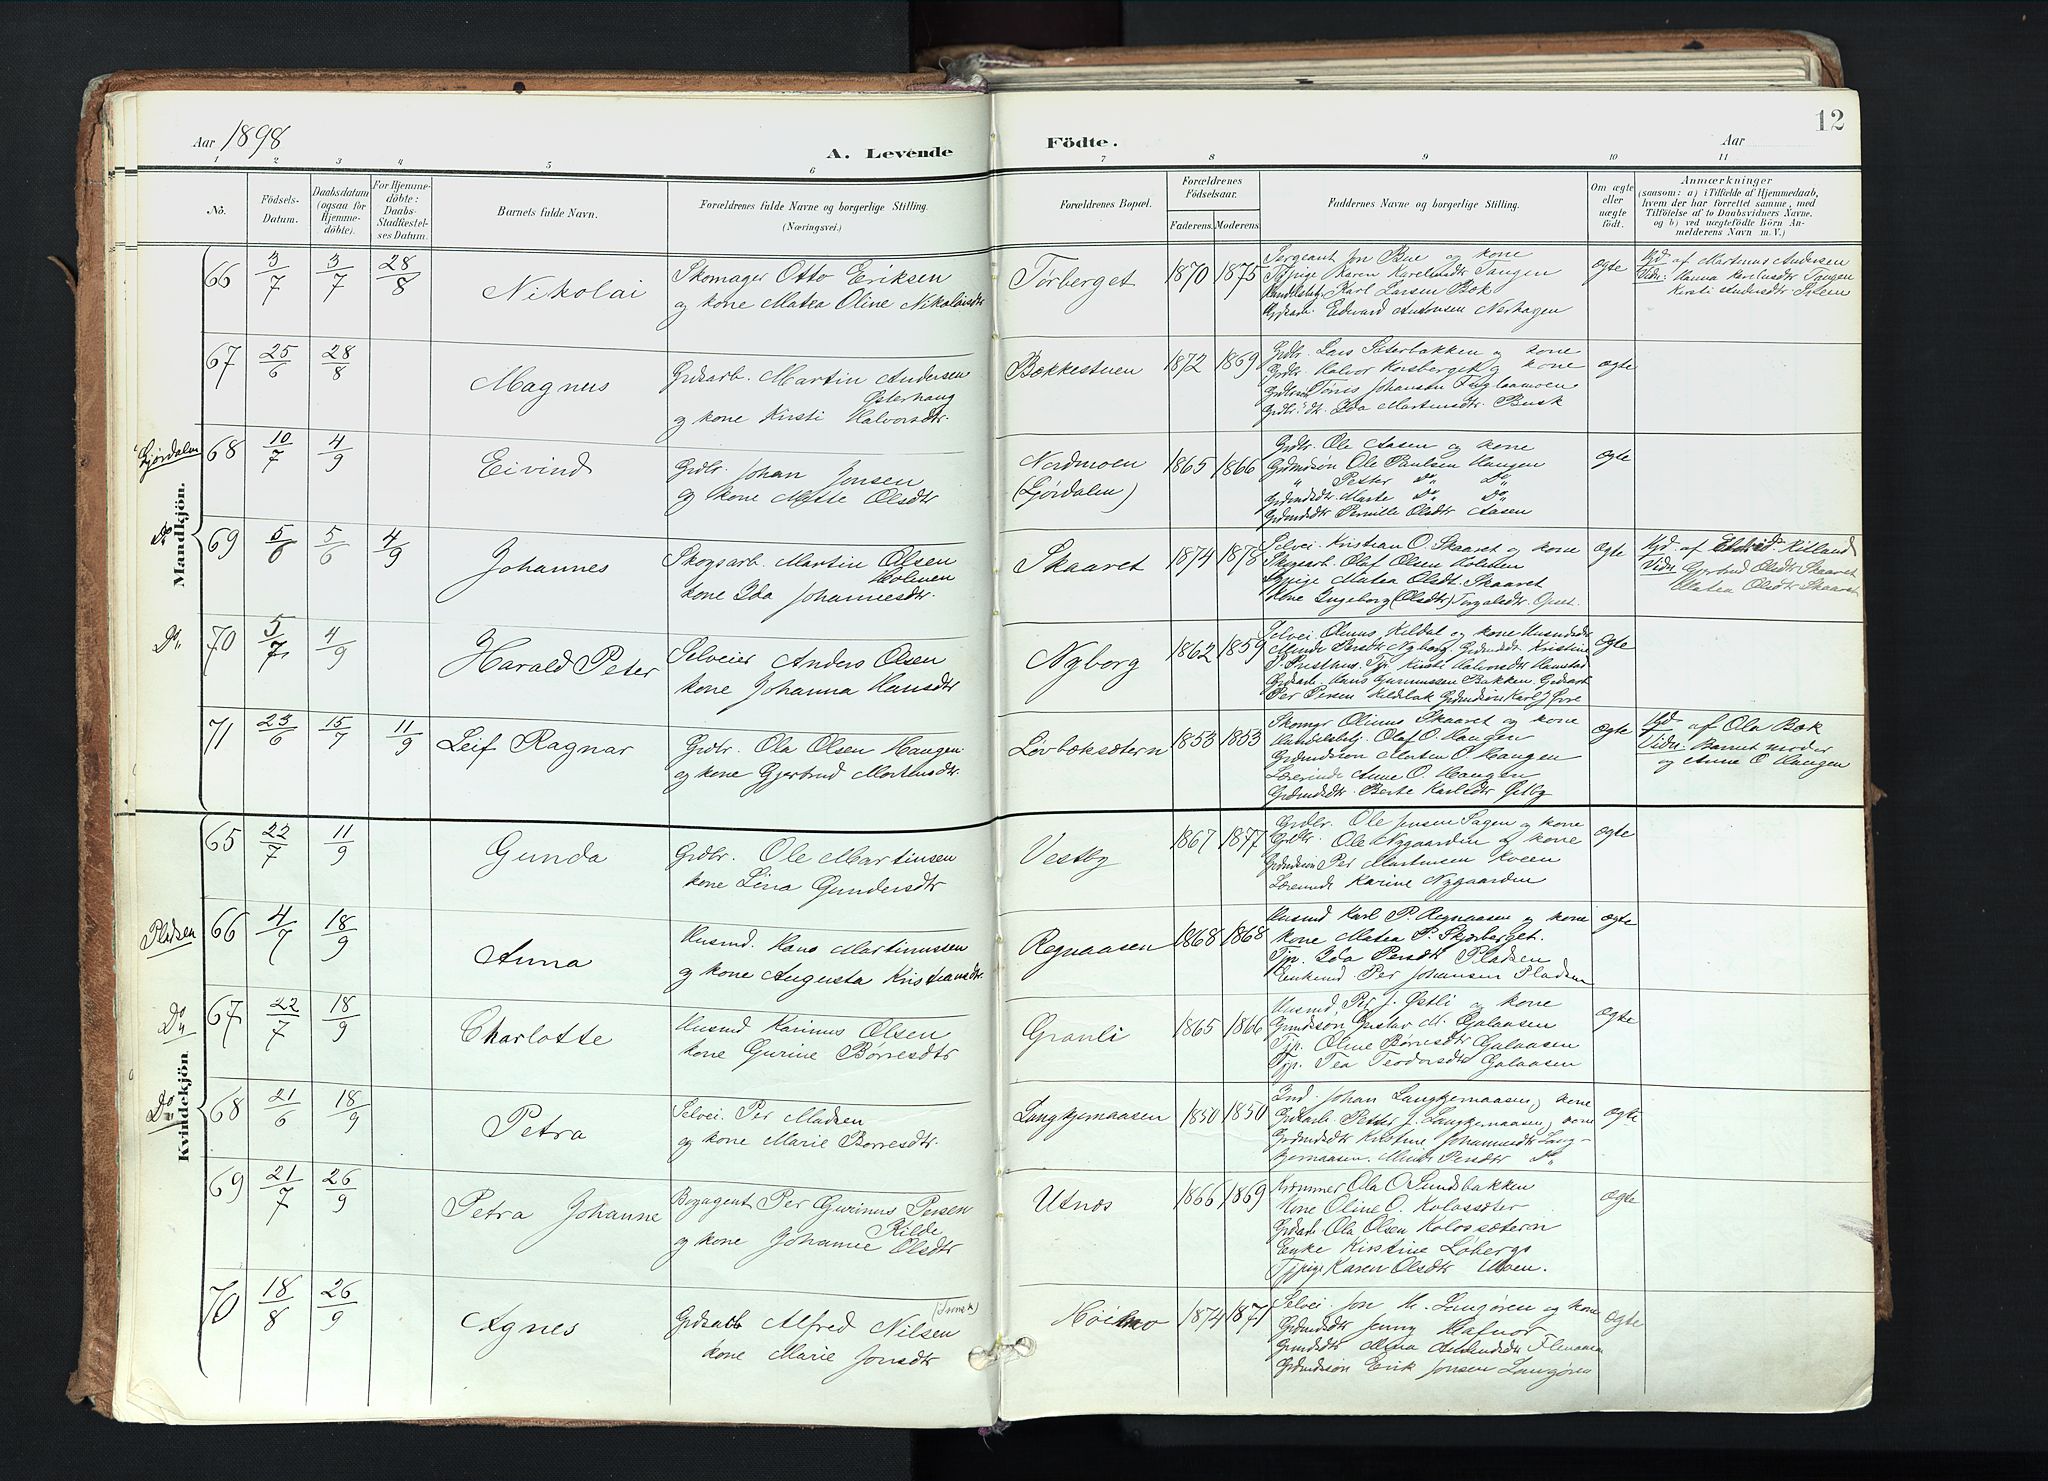 Aar 1898
A. Levende
Födte.
Aar
12
1 2 3 4 5 6 7 8 9 10 11
No.
Födsels-Datum.
Daabsdatum (ogsaa for Hjemme-döbte).
For Hjemme-döbte: Daabs-Stadfæstel-ses Datum.
Barnets fulde Navn.
Forældrenes fulde Navne og borgerlige Stilling. (Næringsvei.)
Forældrenes Bopæl.
Forældrenes Födselsaar.
Faderens. Moderens
Faddernes Navne og borgerlige Stilling.
Om ægte eller uægte födt.
Anmærkninger
(saasom: a) i Tilfælde af Hjemmedaab,
hvem der har forrettet samme, med
Tilföielse af to Daabsvidners Navne.
og b) ved uægtefödte Börn An-
melderens Navn m. V.)
Mandkjön.
66 3/7 3/7 28/8 Nikolai
Skomager Otto Eriksen
og kone Matea Oline Nikolaisdtr
Tørberget 1870 1875
Sergeant Jon Bue og kone
Tjpige Karen Tangen
Karl Larsen Bæk
Edvard Antonsen Nerhagen
ægte
Hjd. af Martinus Andersen
Vidn:
67 25/6 28/8 Magnus
Grdsarb. Martin Andersen
Østerhaug
og kone Kirsti Halvorsdtr.
Bækkestuen 1872 1869
Grdbr. Lars Sæterbakken og kone
Grdbr. Halvor Korsberget og kone
Tønes Johansen
Ida Martinsdtr. Busk
ægte
Ljørdalen
68 10/7 4/9 Eivind
Grdbr. Johan Jonsen
og kone Mette Olsdtr
Nordmoen
(Ljørdalen)
1865 1866
Grdbr. Ole Aasen og kone
Grdmdsøn Ole Paulsen Haugen
" Peter Do Do
Grdmdsdtr. Marte Do Do
Grdmdsdtr Pernille Olsdtr Aasen
ægte
Do
69 5/6 5/6 4/9 Johannes
Skogsarb. Martin Olsen
Holmen
kone Ida Johannesdtr.
Skaaret 1874 1878
Selvei. Kristian O. Skaaret og kone
Skogsarb. Olaf Olsen Holmen
Tjpige Matea Olsdt. Skaaret
Kone Ingeborg (Olsdtr)
ægte
Hjd. af
Vidn Gjertrud Olsdtr Skaaret
Matea Olsdtr Skaaret
Do
70 5/7 4/9 Harald Peter
Selveier Anders Olsen
kone Johanna Hansdtr
Nyborg 1862 1859
Selvei Olinus Kildal og kone
Persdtr Nyborg. Grdmdsdt Kristine
Tjp. Kirsti Halvorsdtr
Hans Gunnussen Bakken. Grdsarb
Per Persen Grdmdsøn Karl J Øvre
ægte
71 23/6 15/7 11/9 Leif Ragnar
Grdbr. Ola Olsen Haugen
og kone Gjertrud Mortensdtr.
Lovbæksætern 1853 1853
Skomgr Olinus Skaaret og kone
Handelsbetj. Olaf O. Haugen
Grdmdssøn Morten O. Haugen
Lærerinde Anne O. Haugen
Grdmdsdtr. Berte Karlsdtr Østby
ægte
Hjd. af Ola Bæk
Vidn. Barnets moder
og Anne O Haugen
Kvindekjön.
65 22/7 11/9 Gunda
Grdbr. Ole Martinsen
kone Lina Gundersdtr
Vestby 1867 1877
Grdbr. Ole Jensen Sagen og kone
Grdbr. Ole Nygaarden og kone
Grdmdssøn Per Martinsen Kveen
Lærerinde Karine Nygaarden
ægte
Pladsen
66 4/7 18/9 Anna
Husmd. Hans Martinussen
og kone Augusta Kristiansdtr.
Regnaasen 1868 1868
Husmd Karl P. Regnaasen og kone
kone Matea P. Skjærberget.
Tjp. Ida Persdtr Pladsen
Enkemd Per Johansen Pladsen
ægte
Do
67 22/7 18/9 Charlotte
Husmd Karinus Olsen
kone Gurine Børresdtr
Granli 1865 1866
Husmd. Per J. Østli og kone
Gustav M. Galaasen
Tjp. Oline Børresdtr Galaasen
Tjp. Tea Teodorsdtr Galaasen
ægte
Do
68 21/6 18/9 Petra
Selvei. Per Madsen
og kone Marie Børresdtr.
Langkjernaasen 1850 1850
Ind. Johan Langkjernaasen, kone
Grdsarb. Petter J. Langkjernaasen, kone
Grdmdsdtr Kristine Johannesdtr Lang-
kjernaasen. Persdtr Do
ægte
69 21/7 26/9 Petra Johanne
Bogagent Per Gurinus Persen
Kilde
og kone Johanne Olsdtr
Utnæs 1866 1869
Kræmmer Ola O Sundsbakken
Kone Oline O. Kolossæter
Grdsarb Ola Olsen Kolossætern
Enke Kirstine Løbergs
Tjpige Karen Olsdtr Moen.
ægte
70 18/8 26/9 Agnes
Grdsarb Alfred Nilsen
kone Marie Jonsdtr
1874 1871
Selvei. Jon H. Langøren og kone
Grdmdsdtr Jenny Hafnor
Grdmdssøn Erik Jonsen Langøren
ægte